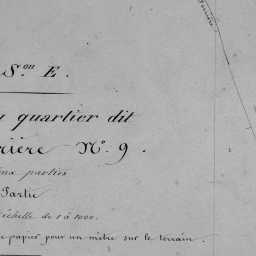 S.on E.
quartier dit
rière N.o 9.
parties
Partie
échelle de 1 à 1000.
papier pour un mètre sur le terrain.